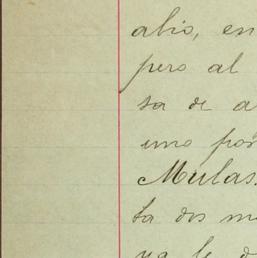 alio, en
pero al
sa de a
uno por
Mulas.
ta dos m
ya le d